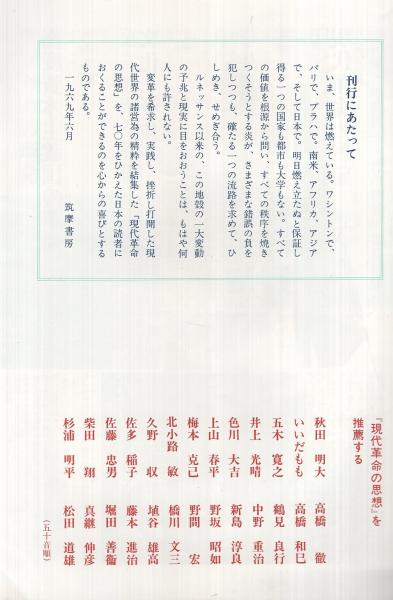 刊行にあたって
いま、世界は燃えている。ワシントンで、
パリで、プラハで。南米、アフリカ、アジア
で、そして日本で。明日燃え立たぬと保証し
得る一つの国家も都市も大学もない。すべて
の価値を根源から問い、すべての秩序を焼き
つくそうとする炎が、さまざまな錯誤の負を
犯しつつも、確たる一つの流路を求めて、ひ
しめき、せめぎ合う。
ルネッサンス以来の、この地殻の一大変動
の予兆と現実に目をおおうことは、もはや何
人にも許されない。
変革を希求し、実践し、挫折し打開した現
代世界の諸営為の精粋を結集した「現代革命
の思想」を、七〇年をひかえた日本の読者に
おくることができるのを心からの喜びとする
ものである。
一九六九年六月
筑摩書房
『現代革命の思想』を
推薦する
秋田 明大 高橋 徹
いいだもも 高橋 和巳
五木 寛之 鶴見 良行
井上 光晴 中野 重治
色川 大吉 新島 淳良
上山 春平 野坂 昭如
梅本 克己 野間 宏
北小路 敏 橋川 文三
久野 収 埴谷 雄高
佐多 稲子 藤本 進治
佐藤 忠男 堀田 善衞
柴田 翔 真継 伸彦
杉浦 明平 松田 道雄
(五十音順)